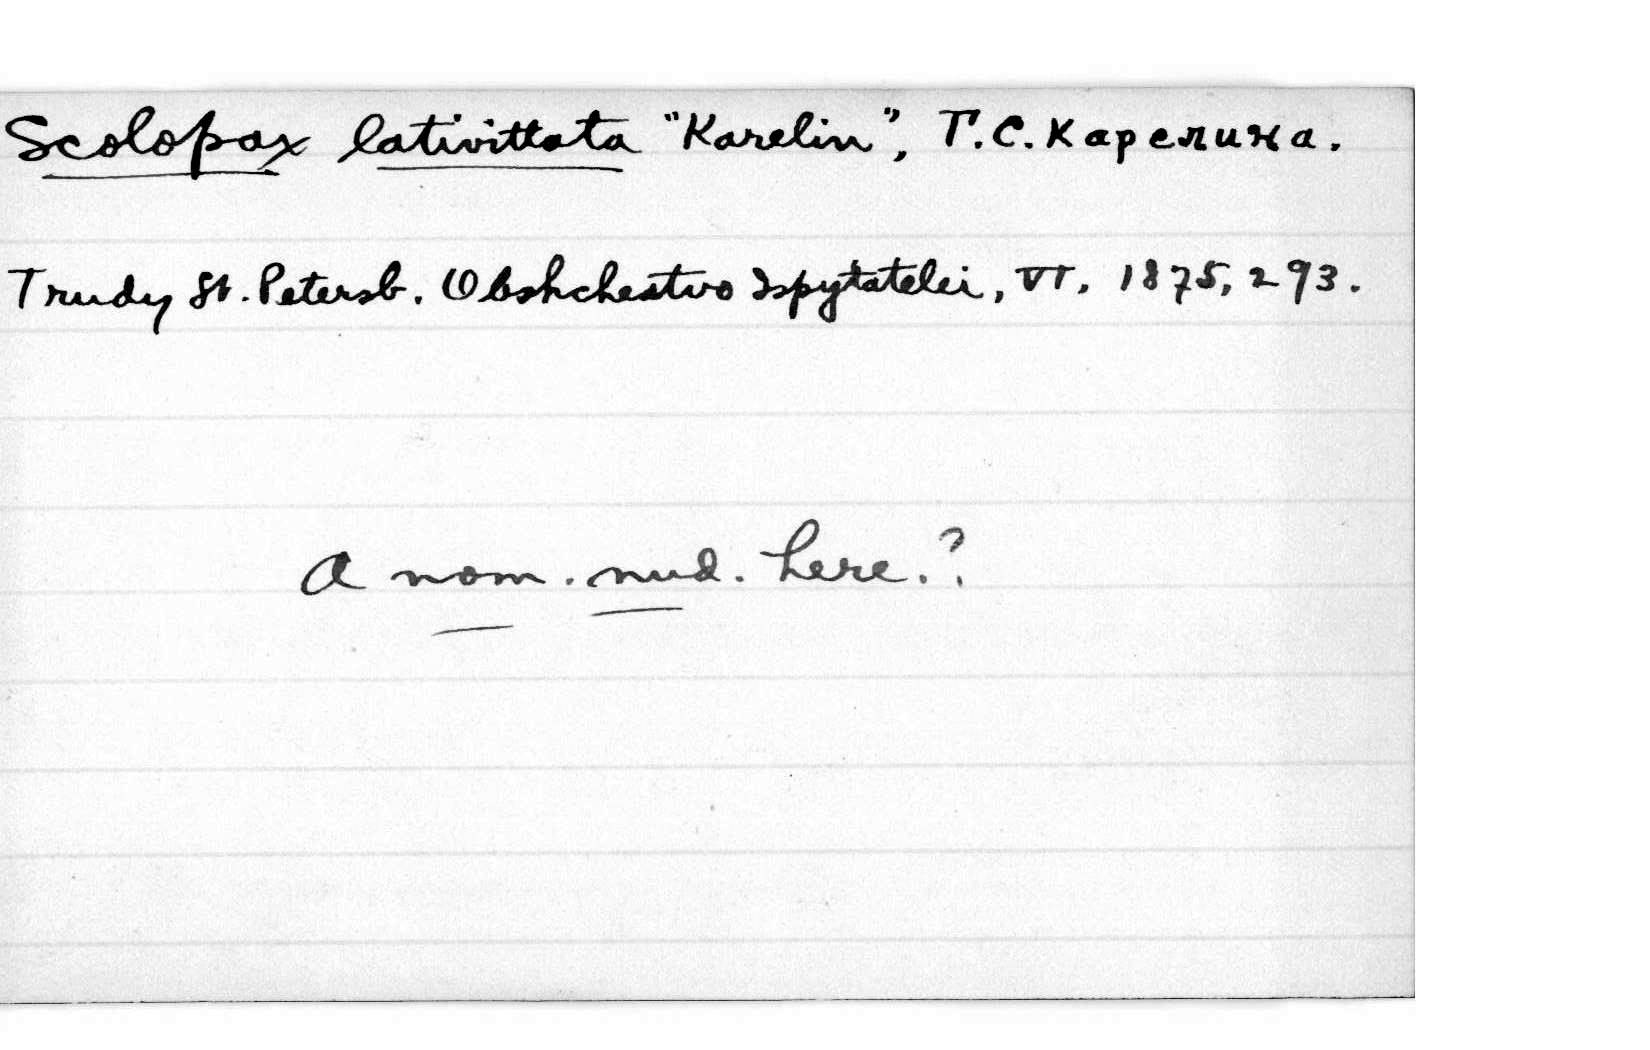 Scolopax lativittata "Karelin", Г.С. Карелина.
Trudy St. Petersb. Obshchestvo Ispytatelei, VI, 1875, 293.
A nom. nud. here.?